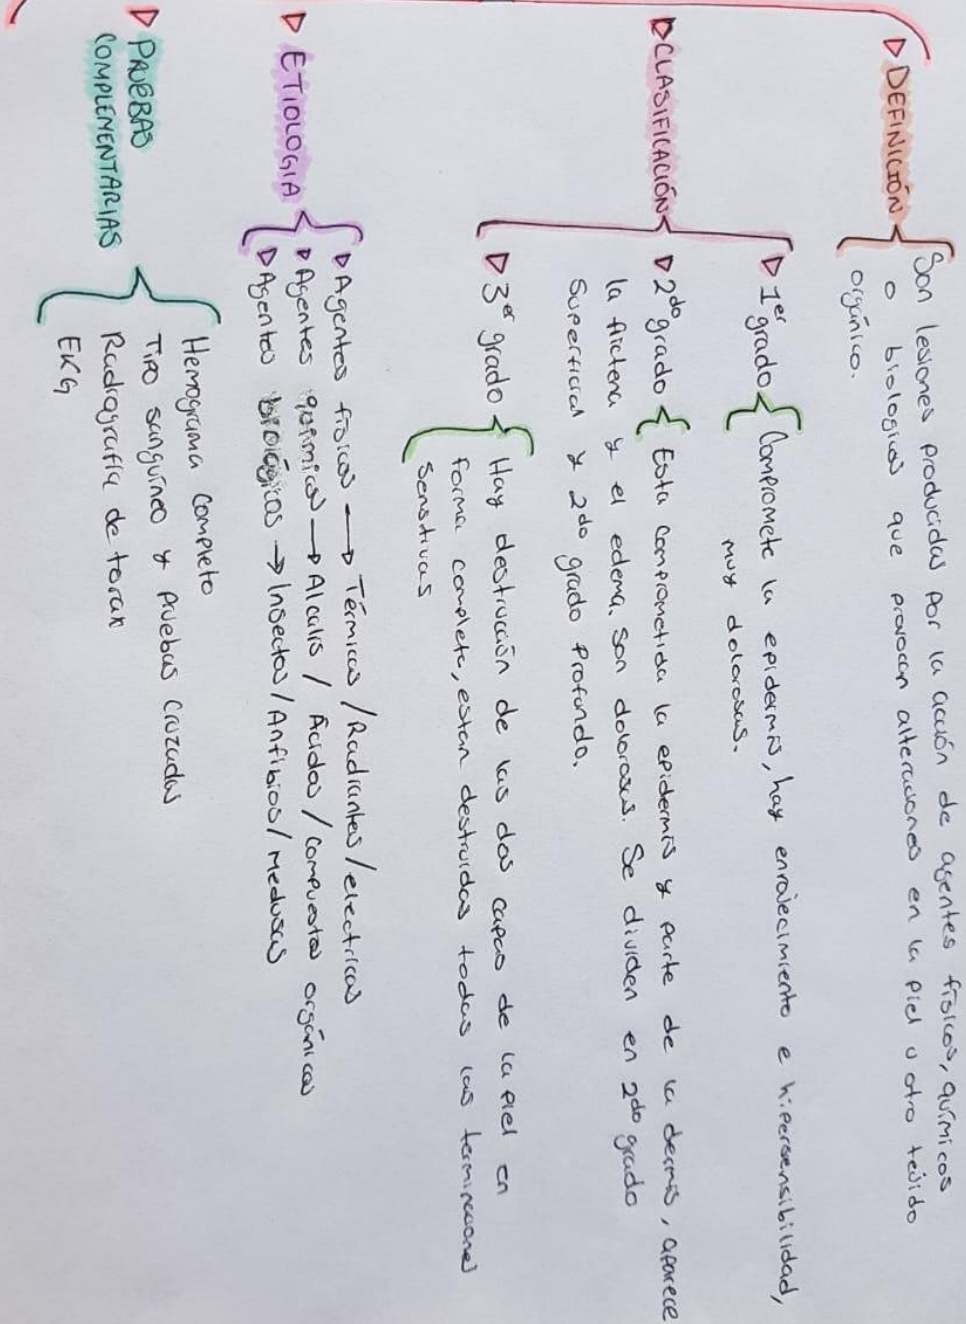 ▷ DEFINICIÓN
Son lesiones producidas por la acción de agentes físicos, químicos
o biologicos que provocan alteraciones en la piel u otro tejido
orgánico.
▷ CLASIFICACIÓN
▷ 1er grado
Compromete la epidermis, hay enrojecimiento e hipersensibilidad,
muy dolorosas.
▷ 2do grado
Esta comprometida la epidermis y parte de la dermis, aparece
la flictena y el edema. Son dolorosas. Se dividen en 2do grado
superficial y 2do grado profundo.
▷ 3er grado
Hay destrucción de las dos capas de la piel en
forma completa, estan destruidas todas las terminaciones
sensitivas
▷ ETIOLOGIA
▷ Agentes físicos → Térmicas / Radiantes / electricas
▷ Agentes químicos → Alcalis / Ácidos / Compuestos orgánicos
▷ Agentes biológicos → Insectos / Anfibios / medusas
▷ PRUEBAS
COMPLEMENTARIAS
Hemograma completo
Tipo sanguíneo y pruebas cruzadas
Radiografía de torax
EKG